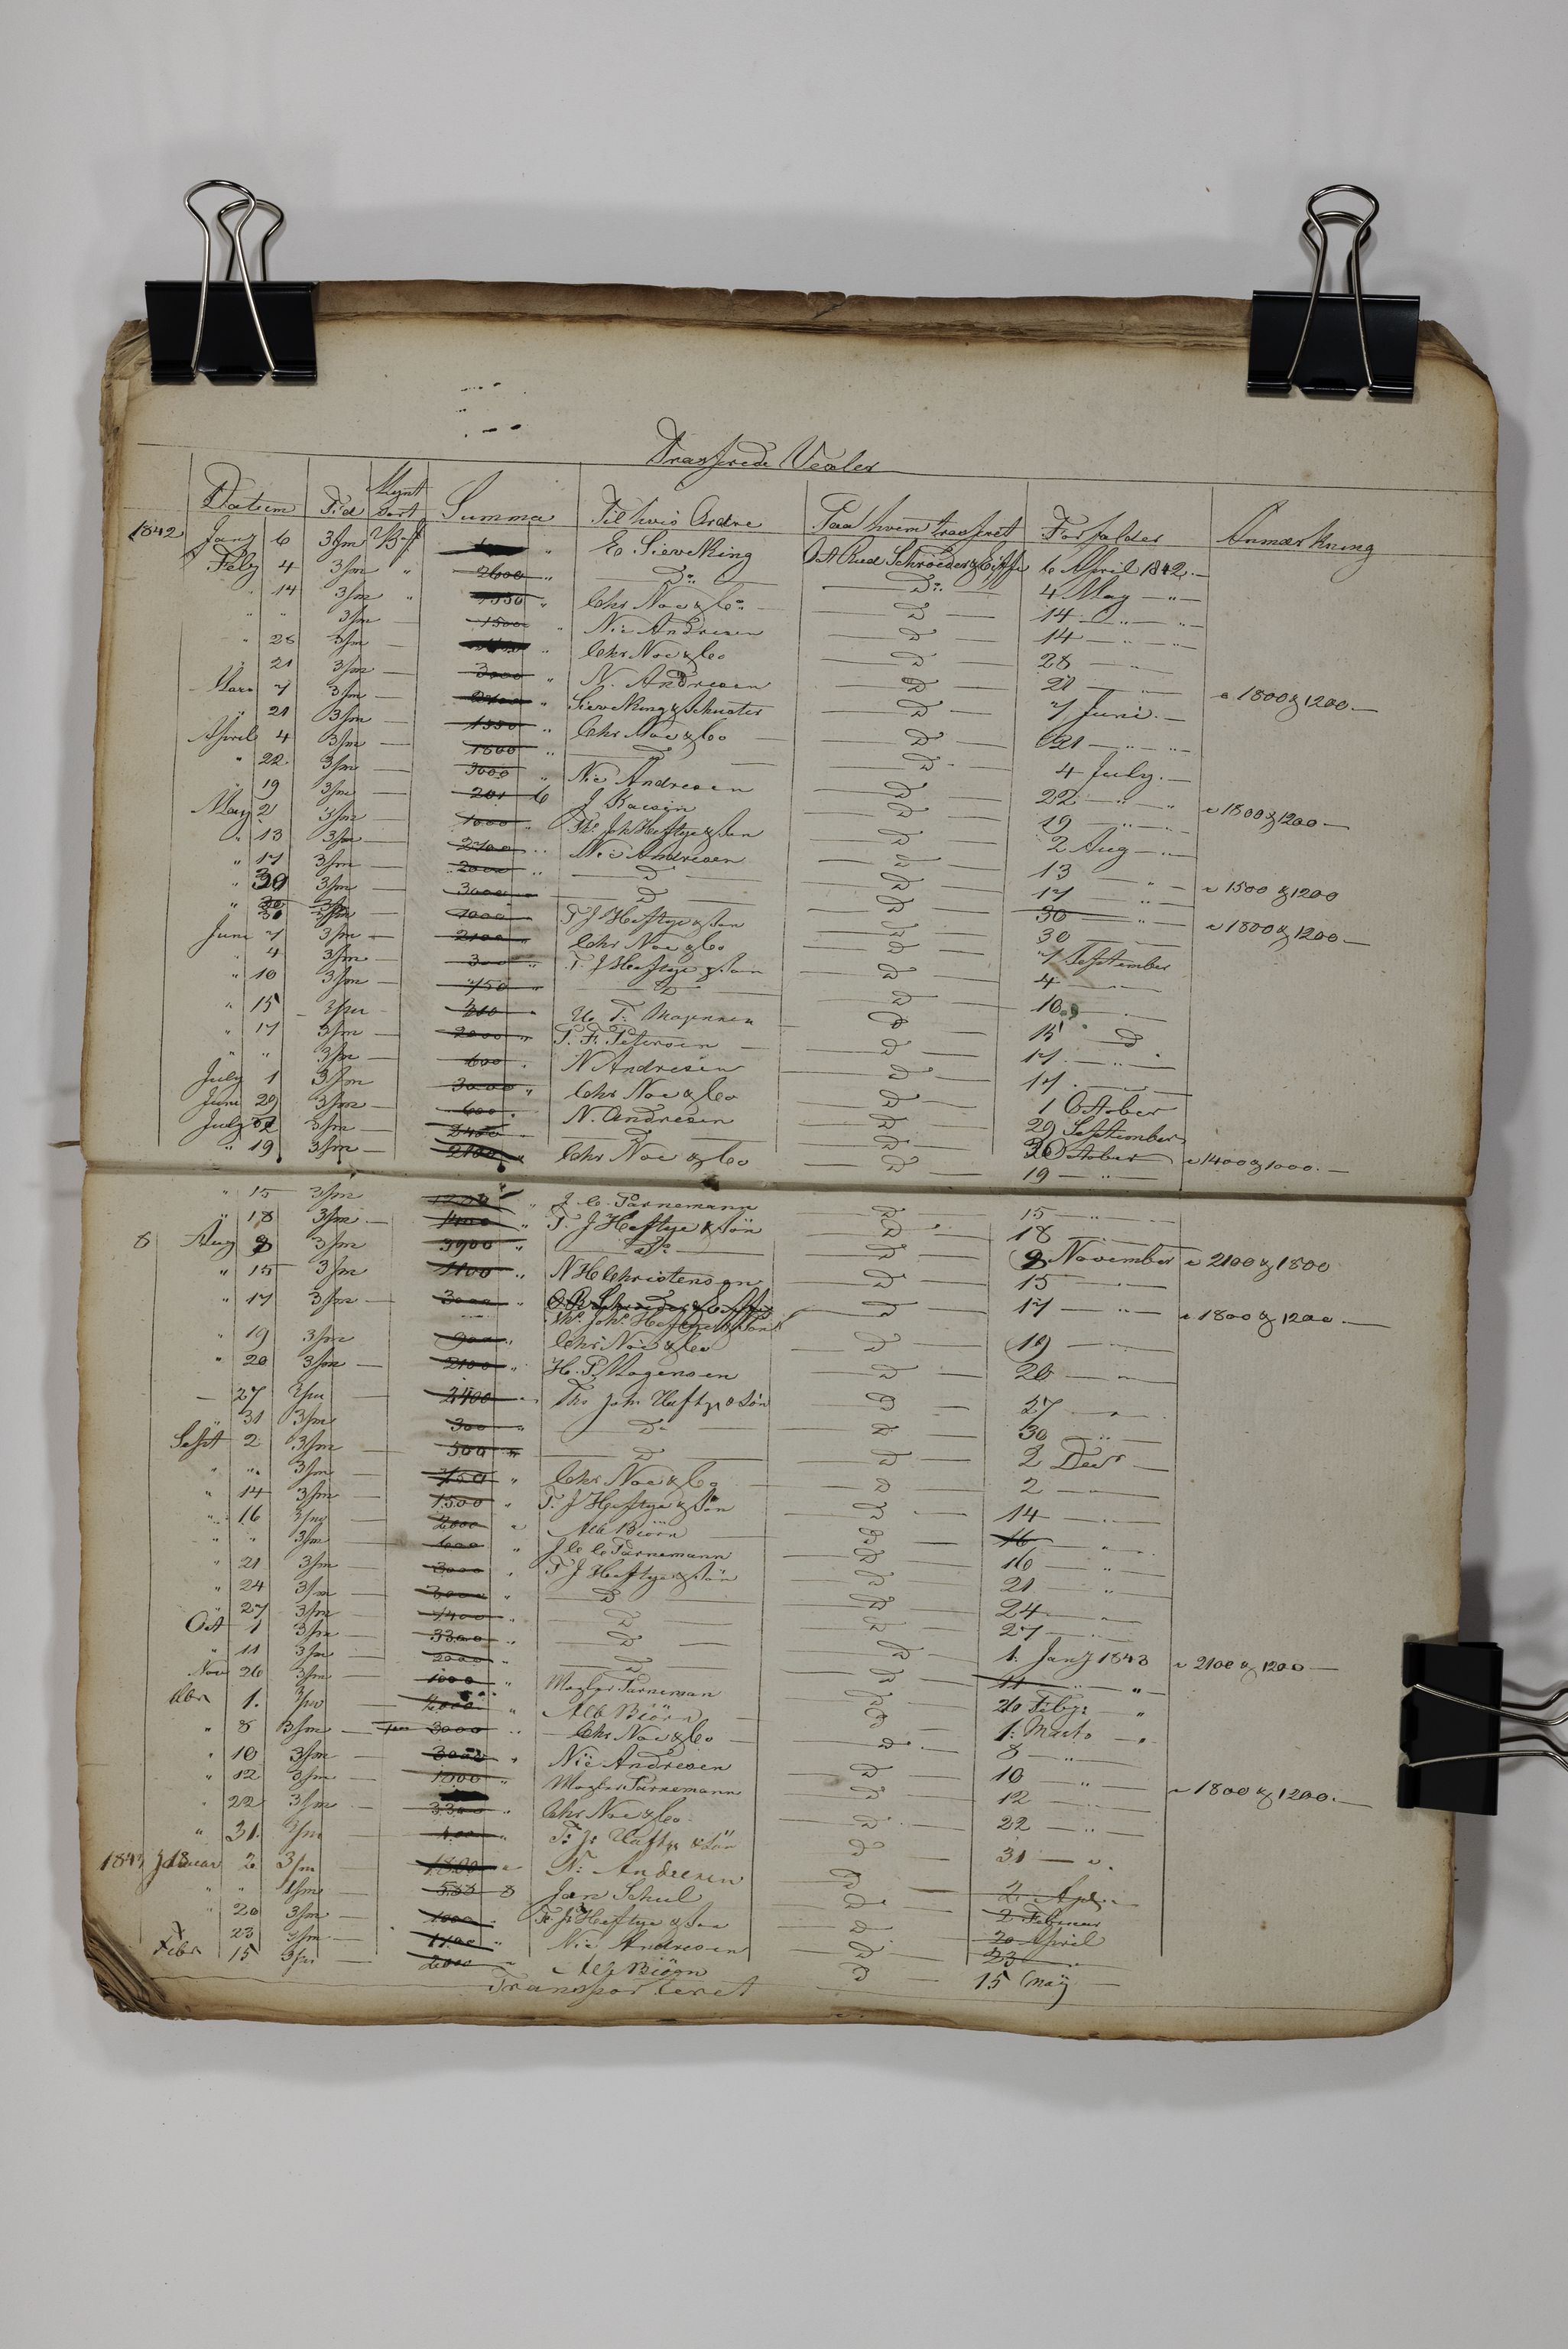 Trasserede Vexler
Datum Tid Mynt sort Summa Til hvis Ordre Paa hvem trasseret Forfalder Anmærkning
1842 Jany 6 3/m E. Sieveking 6 April 1842
Feby 4 3/m " 2600 " Do Do 4 May "
" 14 3/m " 1350 " Chr Noe & Co D 14 " "
" " 3/m 1500 " Nic Andresen D 14 " "
" 28 3/m " Chr Noe & Co D 28 "
" 21 3/m 3000 " N. Andresen D 21 " a 1800 & 1200
Mars 7 3/m " Sieveking & Schuster D 7 Juni
" 21 3/m 1350 " Chr Noe & Co D 21 " "
April 4 3/m 1600 " D D 4 July
" 22 3/m 3000 " Nic Andresen D 22 " " a 1800 & 1200
" 19 3/m 201 6 J. D 19 " "
May 2 3/m 1000 " Ths Joh Heftye & Søn D 2 Aug
" 13 3/m 2700 " Nic Andresen D 13 " a 1500 & 1200
" 17 3/m 2000 " D D 17 "
" 30 3/m 3000 " D D 30 " a 1800 & 1200
" 30 3/m 1000 " T J Heftye & Søn D 30
Juni 7 3/m 2100 " Chr Noe & Co D 7 September
" 4 3/m 300 " T. J Heftye & Søn D 4 "
" 10 3/m 750 " D D 10
" 15 " D 15 D
" 17 3/m 2000 " P. F. Petersen D 17 " "
" " 3/m 600 " N Andresen D 17
July 1 3/m 3000 " Chr Noe & Co D 1 October
Juni 29 3/m 600 " N. Andresen D 29 September
July 3/m 2400 D D October a 1400 & 1000
" 19 3/m 2100 " Chr Noe & Co D 19 "
" 15 3/m " J. C. Parnemann D 15 "
" 18 3/m 1400 " T. J Heftye & Søn D 18
8 Aug 9 3/m 3900 " Do D 9 November a 2100 & 1800
" 15 3/m 1100 " N H Christensen D 15
" 17 3/m 3000 " D 17 " a 1800 & 1200
Ths Johs Heftye & Søn
" 19 3/m 900 " Chr Noe & Co D 19
" 20 3/m 2100 " H. P. Mogensen D 20 "
27 2400 " Ths Joh Heftye & Søn D 27 "
" 31 3/m 300 " Do D 30 "
Sept 2 3/m 500 " D D 2 Decr
" " 3/m 750 " Chr Noe & Co D 2
" 14 3/m 1500 " T. J Heftye & Søn D 14
" 16 3/m 2000 " Alb Biörn D 16 "
" " 3/m 600 " J C C Parnemann D 16 "
" 21 3/m 3000 " T J Heftye & Søn D 21 "
" 24 3/m 3000 " D D 24 "
" 27 3/m 1400 " D D 27
Oct 1 3/m 3300 " D D 1. Jany 1843 a 2100 & 1200
" 11 3/m 2000 " D D 11 " "
Nov 26 3/m 1000 " Mogler Parneman D 26 Feby "
Dbr 1. 3/m 2000 " Alb Biörn D 1. Marts "
" 8 3/m 3000 " Chr Noe & Co D 8 "
" 10 3/m 3000 " Nic Andresen D 10 " a 1800 & 1200
" 12 3/m 1800 " Mogler Parnemann D 12 "
" 22 3/m 3300 " Chr Noe & Co D 22 "
" 31. " T. J. Heftye & Søn D 31 "
1843 Januar 2 3/m 1800 " N. Andresen D 2. Apl.
" " 533 8 Jan Schul D 2 Februar
" 20 3/m 1000 " T. J. Heftye & Søn D 20 April
" 23 3/m 1100 " Nic Andresen D 23 "
Febr 15 3/m 2000 " Alb Biörn D 15 May
Transporteret